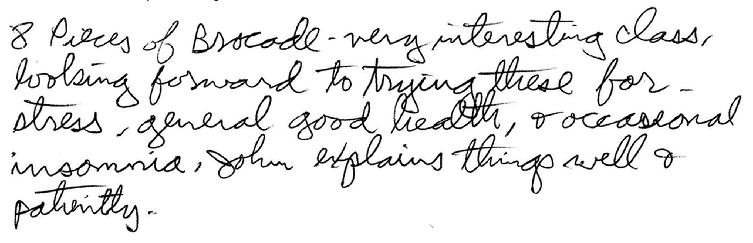 8 Pieces of Brocade - very interesting class,
looking forward to trying these for
stress, general good health, & occasional
insomnia. John explains things well &
patiently.